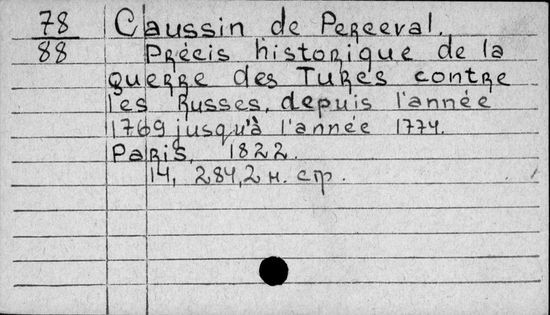 78 Caussin de Perceval.
88 Précis historique de la
guerre des Turcs contre
les Russes, depuis l'année
1769 jusqu'à l'année 1774.
Paris, 1822.
14, 284, 2 н. стр.